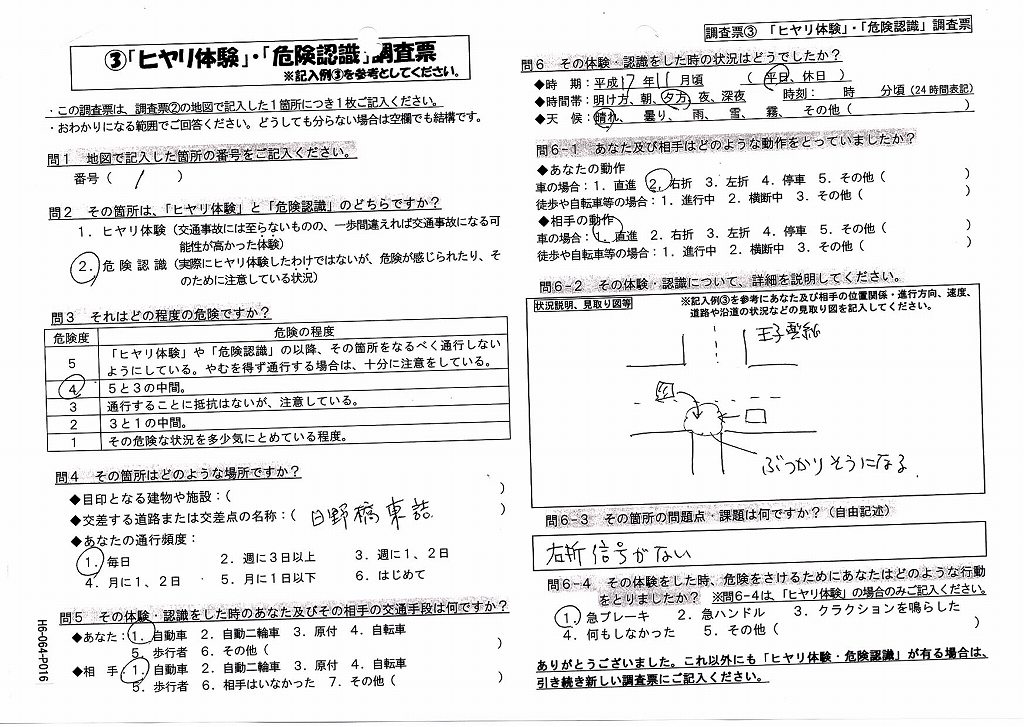 ③「ヒヤリ体験」・「危険認識」調査票
※記入例③を参考としてください。
・この調査票は、調査票②の地図で記入した1箇所につき1枚ご記入ください。
・おわかりになる範囲でご回答ください。どうしても分らない場合は空欄でも結構です。
問1 地図で記入した箇所の番号をご記入ください。
番号( 1 )
問2 その箇所は、「ヒヤリ体験」と「危険認識」のどちらですか?
1.ヒヤリ体験(交通事故には至らないものの、一歩間違えれば交通事故になる可
能性が高かった体験)
2.危険認識(実際にヒヤリ体験したわけではないが、危険が感じられたり、そ
のために注意している状況)
問3 それはどの程度の危険ですか?
危険度 危険の程度
5 「ヒヤリ体験」や「危険認識」の以降、その箇所をなるべく通行しない
ようにしている。やむを得ず通行する場合は、十分に注意をしている。
4 5と3の中間。
3 通行することに抵抗はないが、注意している。
2 3と1の中間。
1 その危険な状況を多少気にとめている程度。
問4 その箇所はどのような場所ですか?
◆目印となる建物や施設:( )
◆交差する道路または交差点の名称:( 日野橋東詰 )
◆あなたの通行頻度:
1.毎日 2.週に3日以上 3.週に1、2日
4.月に1、2日 5.月に1日以下 6.はじめて
問5 その体験・認識をした時のあなた及びその相手の交通手段は何ですか?
◆あなた:1.自動車 2.自動二輪車 3.原付 4.自転車
5.歩行者 6.その他( )
◆相 手:1.自動車 2.自動二輪車 3.原付 4.自転車
5.歩行者 6.相手はいなかった 7.その他( )
H6-064-P016
調査票③ 「ヒヤリ体験」・「危険認識」調査票
問6 その体験・認識をした時の状況はどうでしたか?
◆時 期:平成17年11月頃 (平日、休日)
◆時間帯:明け方、朝、夕方、夜、深夜 時刻: 時 分頃(24時間表記)
◆天 候:晴れ、 曇り、 雨、 雪、 霧、 その他( )
問6-1 あなた及び相手はどのような動作をとっていましたか?
◆あなたの動作
車の場合:1.直進 2.右折 3.左折 4.停車 5.その他( )
徒歩や自転車等の場合:1.進行中 2.横断中 3.その他( )
◆相手の動作
車の場合:1.直進 2.右折 3.左折 4.停車 5.その他( )
徒歩や自転車等の場合:1.進行中 2.横断中 3.その他( )
問6-2 その体験・認識について、詳細を説明してください。
状況説明、見取り図等
※記入例③を参考にあなた及び相手の位置関係・進行方向、速度、
道路や沿道の状況などの見取り図を記入してください。
王子製紙
ぶつかりそうになる.
問6-3 その箇所の問題点・課題は何ですか?(自由記述)
右折信号がない
問6-4 その体験をした時、危険をさけるためにあなたはどのような行動
をとりましたか? ※問6-4は、「ヒヤリ体験」の場合のみご記入ください。
1.急ブレーキ 2.急ハンドル 3.クラクションを鳴らした
4.何もしなかった 5.その他( )
ありがとうございました。これ以外にも「ヒヤリ体験・危険認識」が有る場合は、
引き続き新しい調査票にご記入ください。